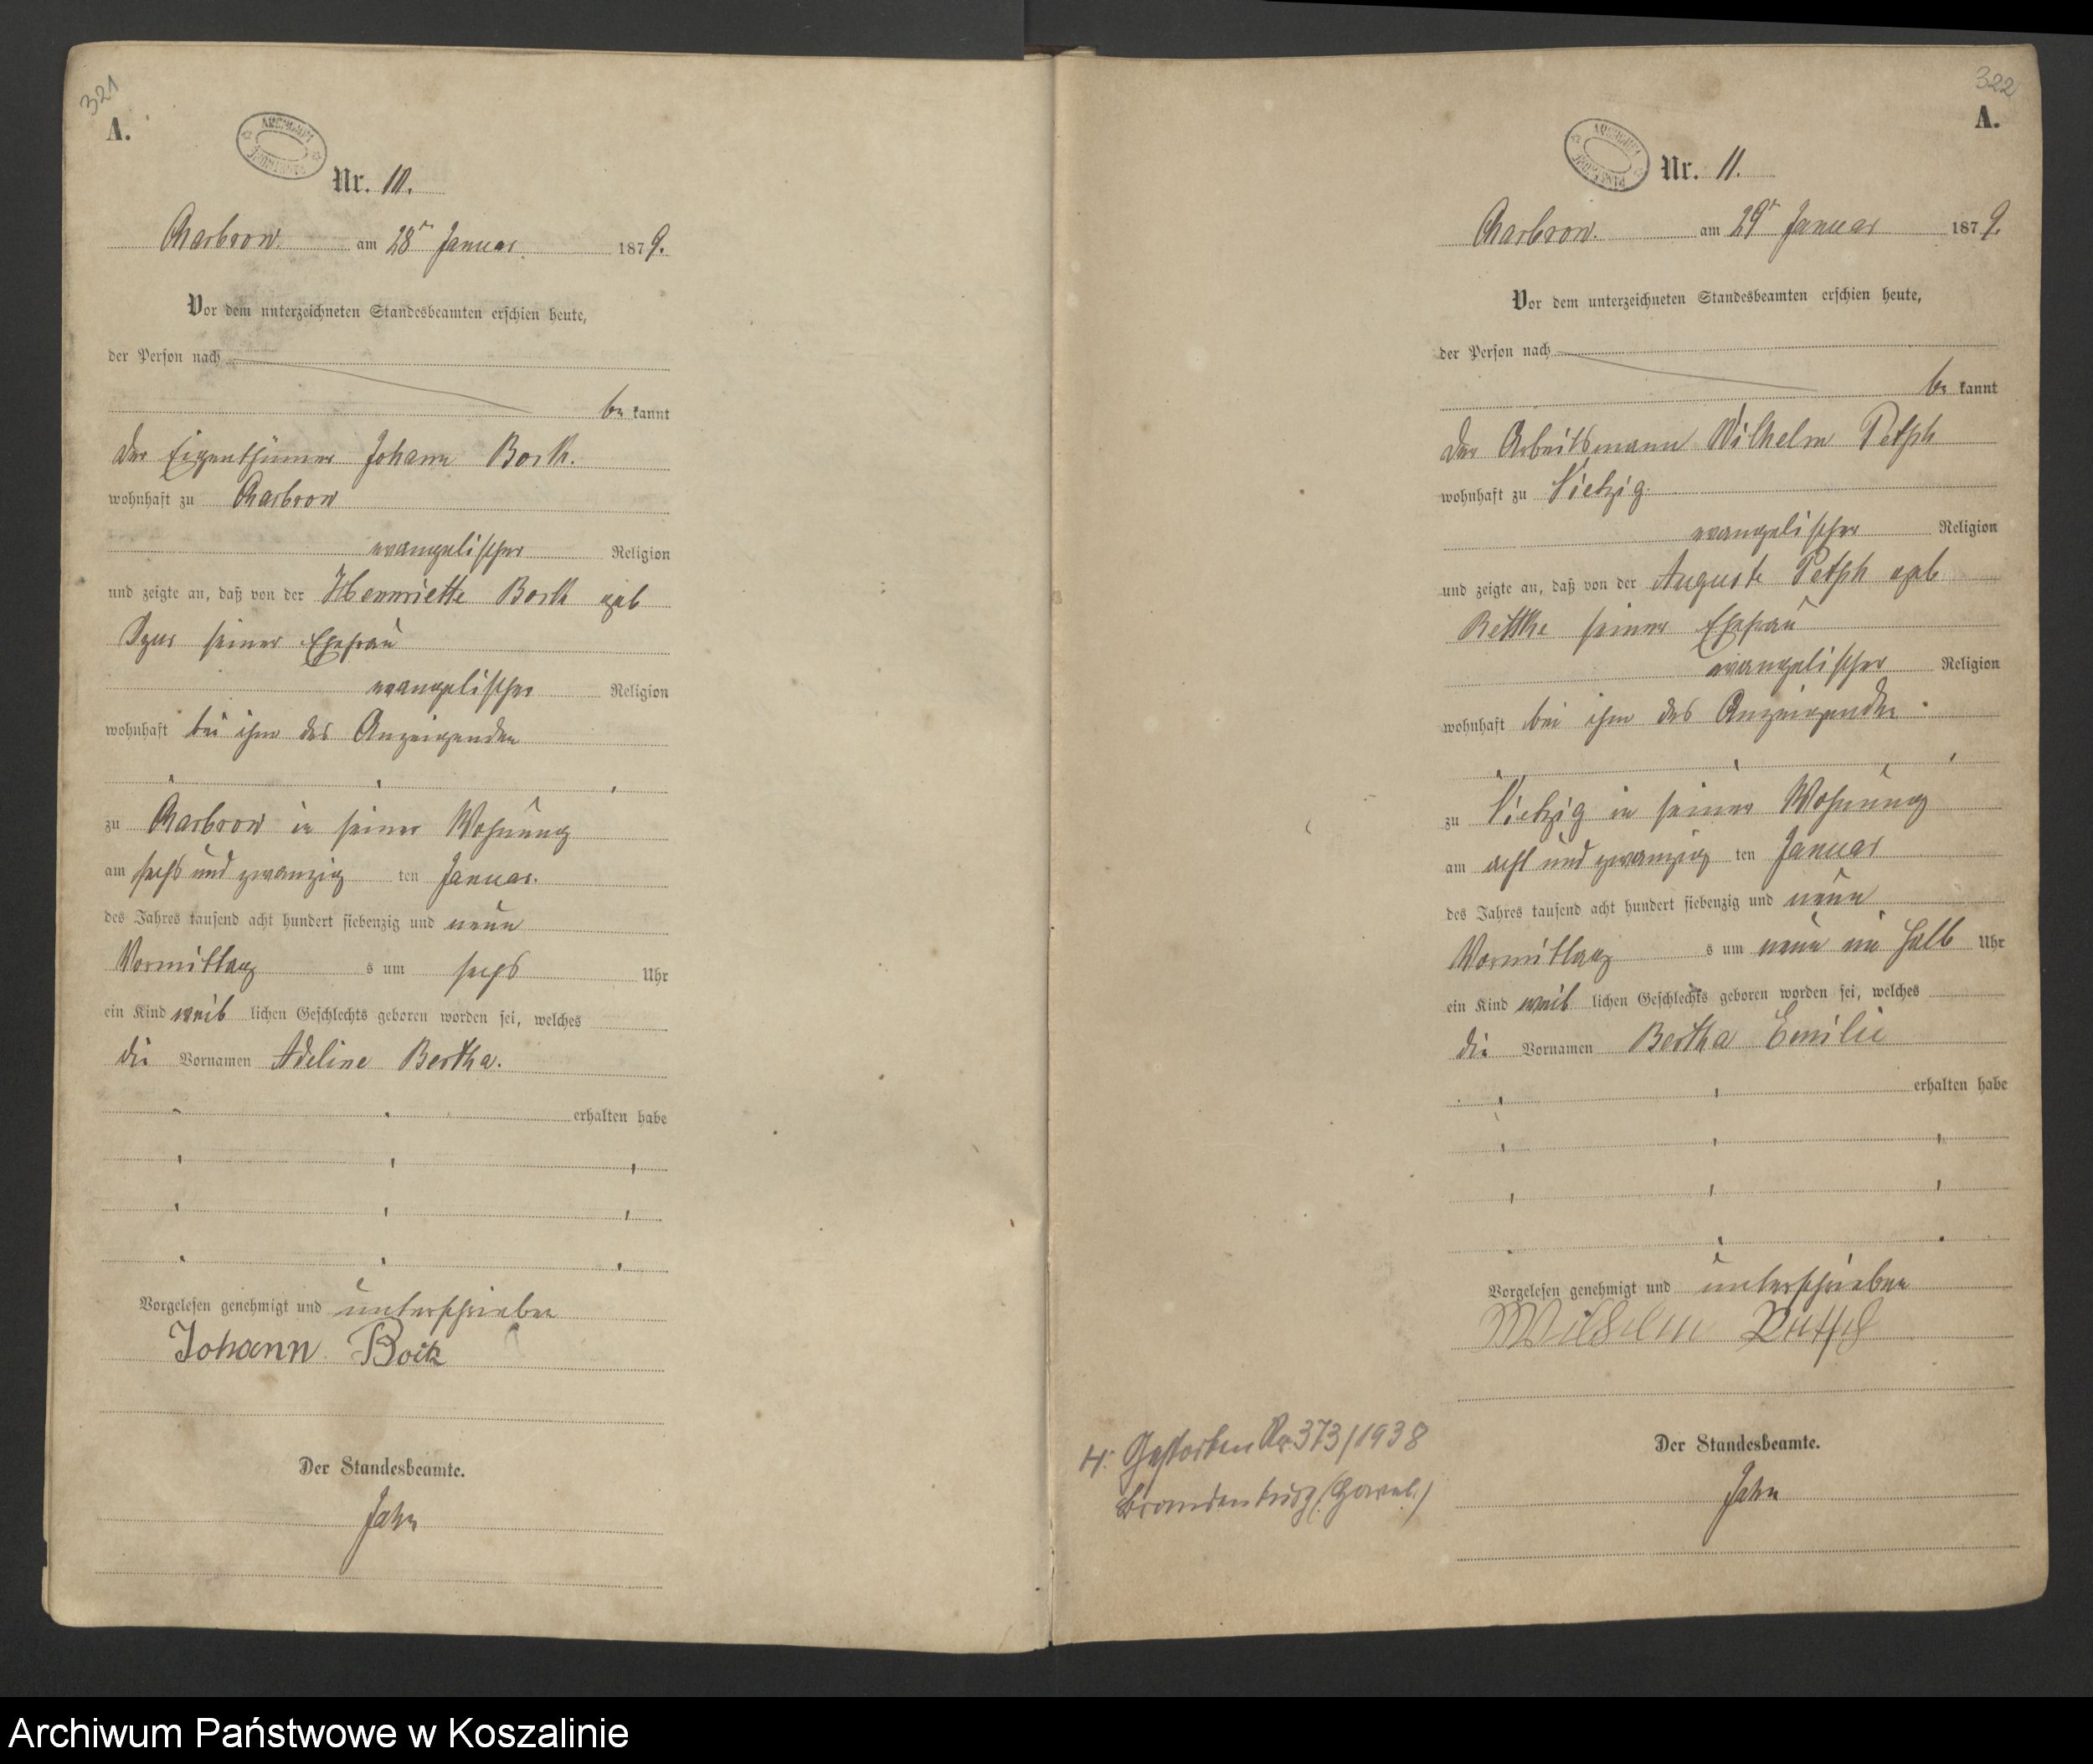 321
A.
ARCHIWUM
Nr. 10.
Charbrow. am 28n Januar. 1879.
Vor dem unterzeichneten Standesbeamten erschien heute,
der Person nach
be kannt
der Eigenthümer Johann Bork.
wohnhaft zu Charbrow
evangelischer Religion
und zeigte an, daß von der Henriette Bork geb
seiner Ehefrau
evangelischer Religion
wohnhaft bei ihm des Anzeigenden
zu Charbrow in seiner Wohnung
am sechs und zwanzig ten Januar.
des Jahres tausend acht hundert siebenzig und neun
Vormittag s um sechs Uhr
ein Kind weib lichen Geschlechts geboren worden sei, welches
die Vornamen Adeline Bertha.
erhalten habe
Vorgelesen genehmigt und unterschrieben
Johann Bork
Der Standesbeamte.
Jahn
322
A.
ARCHIWUM
Nr. 11.
Charbrow. am 29n Januar 1879.
Vor dem unterzeichneten Standesbeamten erschien heute,
der Person nach
be kannt
der Arbeitsmann Wilhelm Petsch
wohnhaft zu Vietzig.
evangelischer Religion
und zeigte an, daß von der Auguste Petsch geb
Rettke seiner Ehefrau
evangelischer Religion
wohnhaft bei ihm des Anzeigenden
zu Vietzig in seiner Wohnung
am acht und zwanzig ten Januar
des Jahres tausend acht hundert siebenzig und neun
Vormittag s um neun ein halb Uhr
ein Kind weib lichen Geschlechts geboren worden sei, welches
die Vornamen Bertha Emilie
erhalten habe
Vorgelesen genehmigt und unterschrieben
Wilhelm
H: Gestorben Nr. 373/1938
Brandenburg (Havel.)
Der Standesbeamte.
Jahn
Archiwum Państwowe w Koszalinie